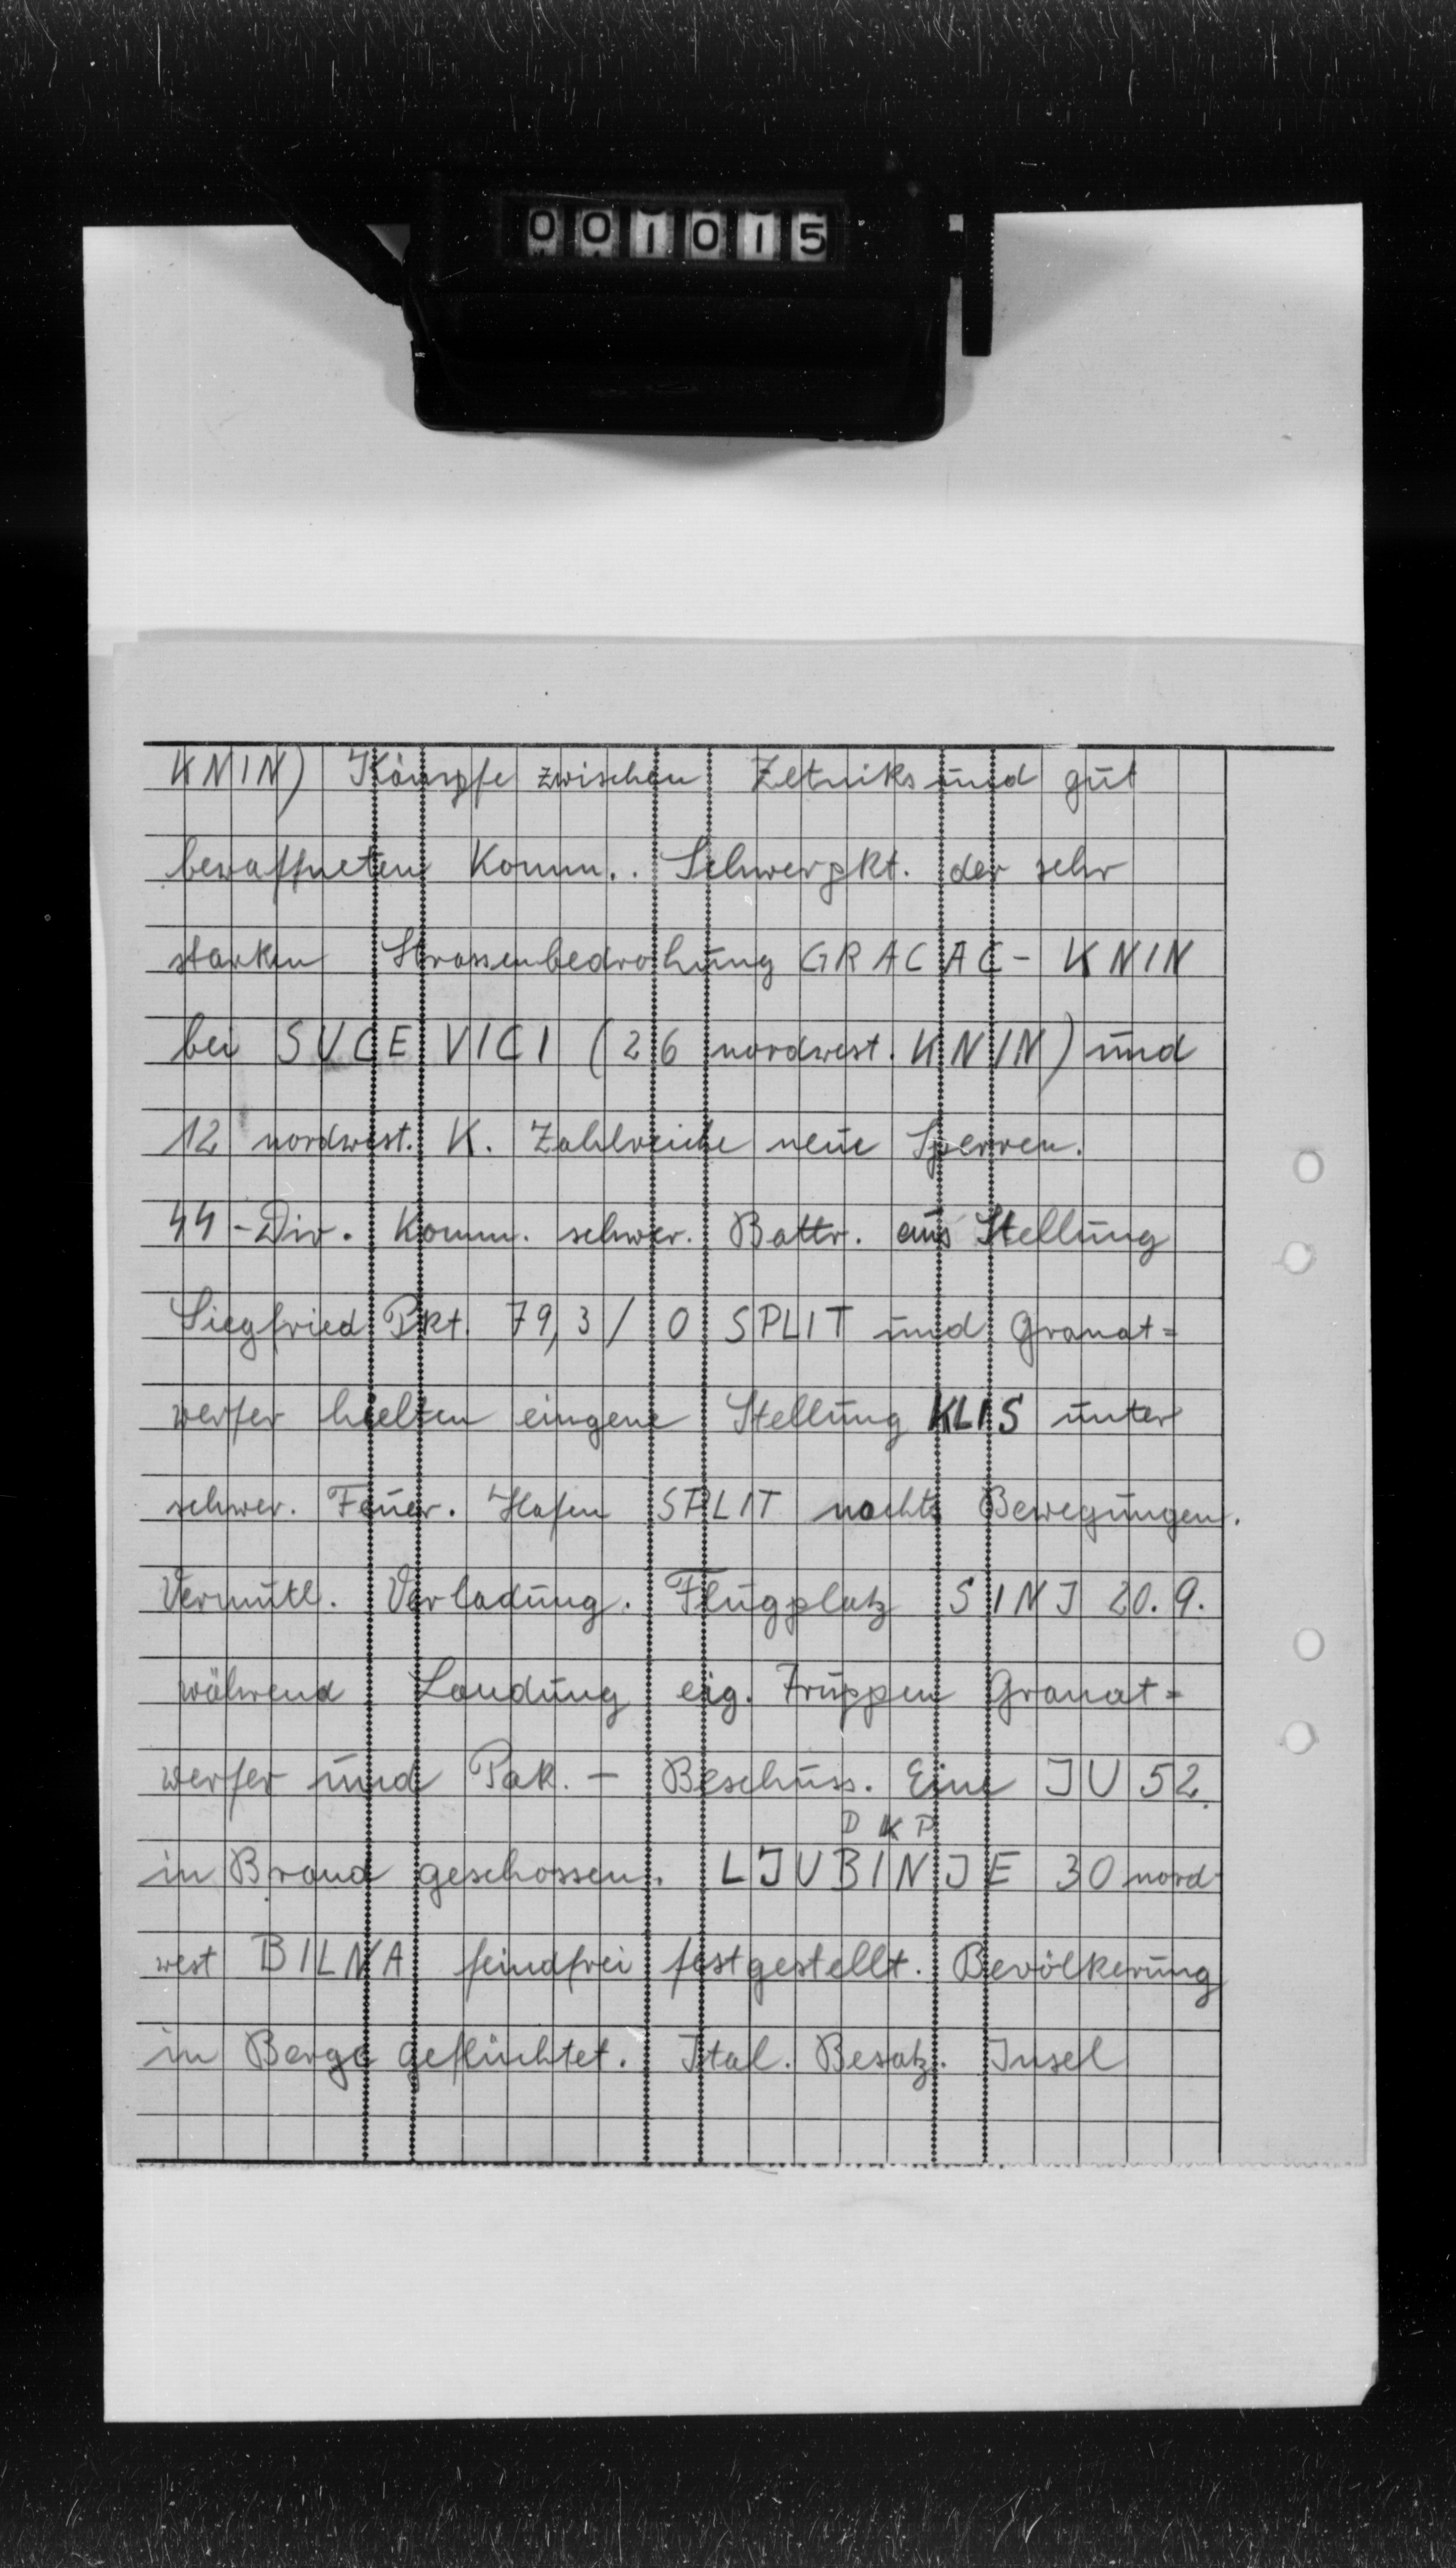 001015
KNIN) Kämpfe zwischen Zetniks und gut
bewaffneten Komm.. Schwerpkt. der sehr
starken Strassenbedrohung GRACAC - KNIN
bei SUCEVICI (26 nordwest. KNIN) und
12 nordwest. K. Zahlreiche neue Sperren.
44-Div. Komm. schwer. Battr. aus Stellung
Siegfried Pkt. 79,3/0 SPLIT und Granat=
werfer hielten eingene Stellung KLIS unter
schwer. Feuer. Hafen SPLIT nachts Bewegungen.
Vermutl. Verladung. Flugplatz SINJ 20.9.
während Landung eig. Truppen Granat=
werfer und Pak. - Beschuss. Eine JU 52
DKP
in Brand geschossen. LJUBINJE 30 nord-
west BILNA feindfrei festgestellt. Bevölkerung
in Berge geflüchtet. Ital. Besatz. Insel